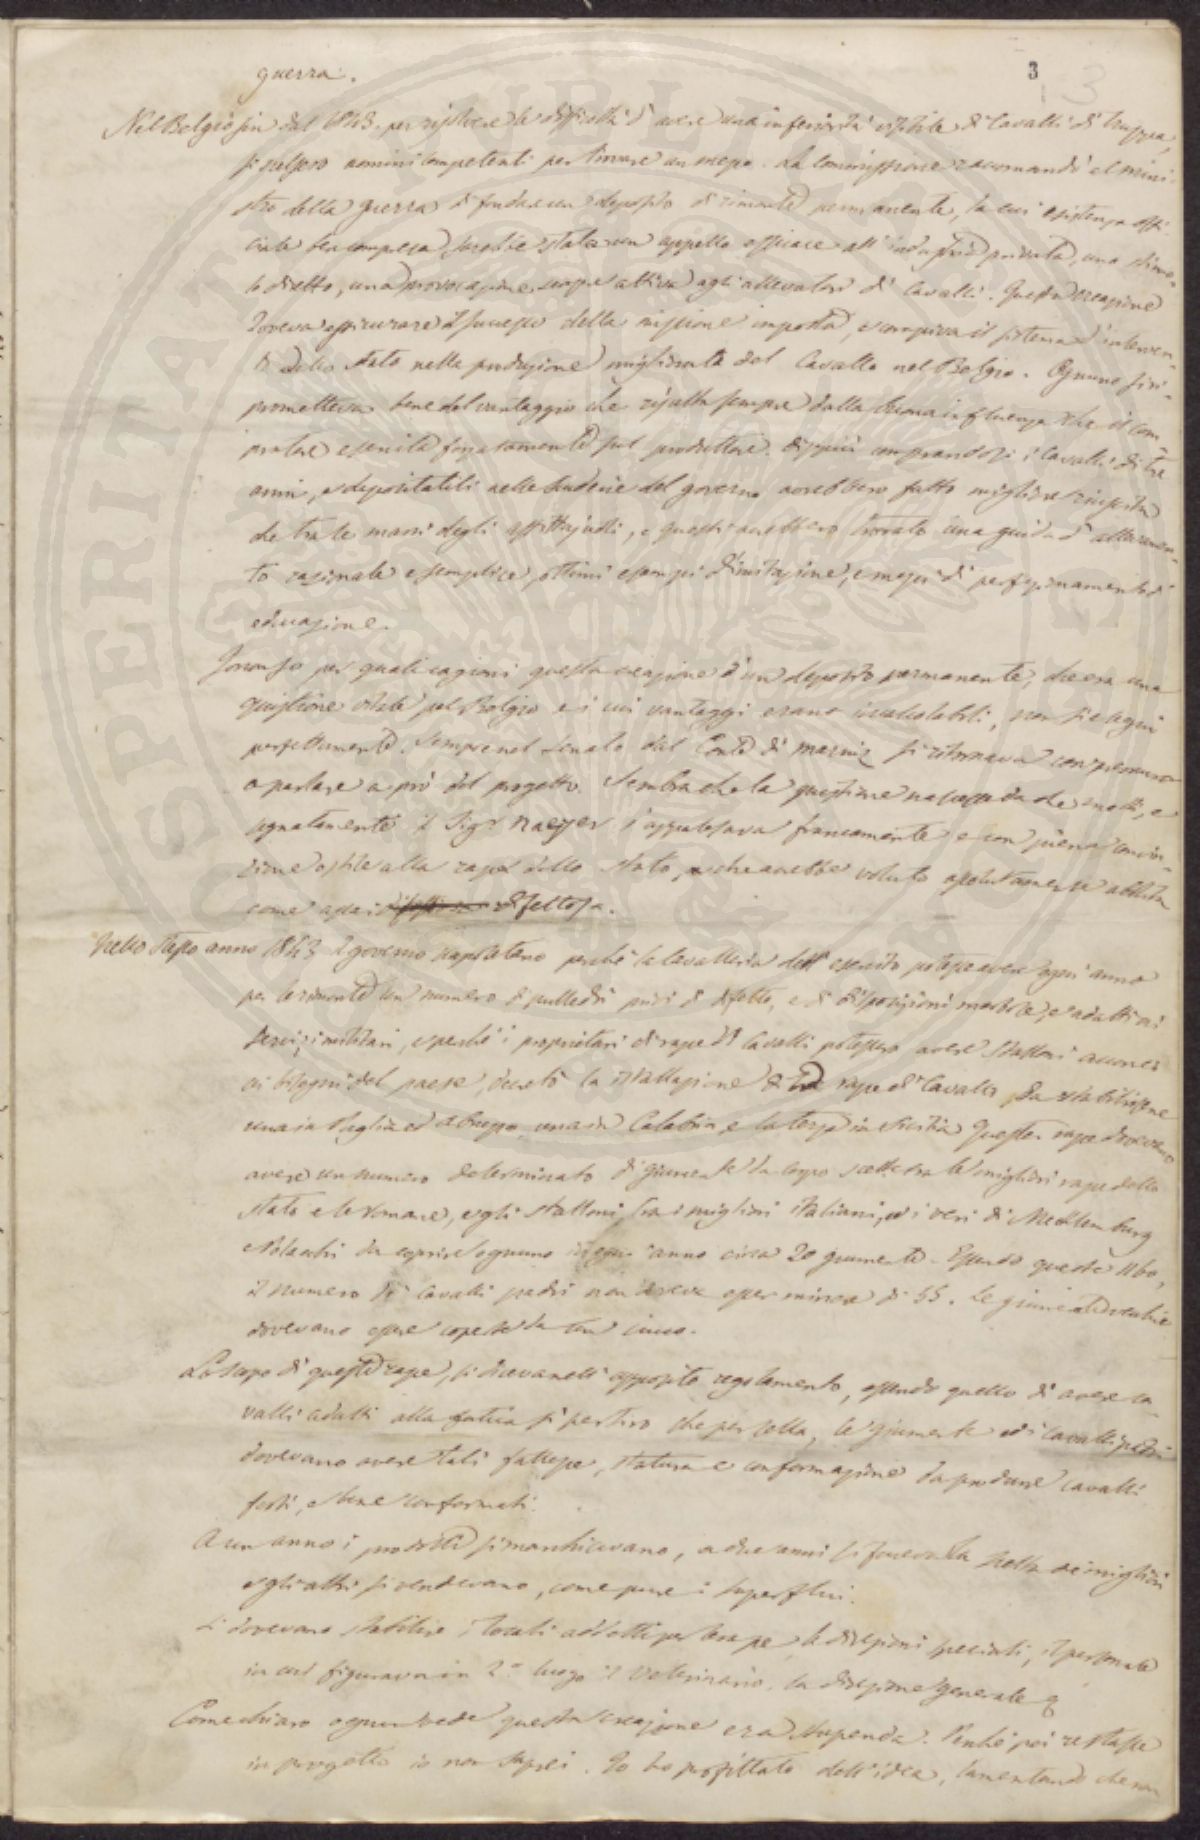 3
3
guerra.
Nel Belgio fin dal 1843. per risolvere le difficoltà d'avere una inferiorità visibile di Cavalli di truppa,
si scelsero uomini competenti per trovare un mezzo. La Commissione raccomandò al mini-
stro della guerra di fondare un deposito di rimonta permanente, la cui esistenza offi-
ciale ben compresa sarebbe stata un appello efficace all'industria privata, uno stimo-
lo diretto, una provocazione sempre attiva agli allevatori di Cavalli. Questa creazione
doveva assicurare il successo della missione imposta, e compiva il sistema d'interven-
to dello Stato nella produzione migliorata del Cavallo nel Belgio. Ognuno si ri-
prometteva bene dal vantaggio che risulta sempre dalla buona influenza che il com-
pratore esercita forzatamente sul produttore. Dippiù comprandosi i Cavalli di tre
anni, e depositatili nelle scuderie del governo avrebbero fatto migliore riuscita
che tra le mani degli affittajuoli, e questi avrebbero trovato una guida d'allevamen-
to razionale e semplice, ottimi esempi d'imitazione, e mezzi di perfezionamento di
educazione.
Ignoro per quali cagioni questa creazione d'un deposito permanente, che era una
quistione vitale pel Belgio e i cui vantaggi erano incalcolabili, non si eseguì
perfettamente. Sempre nel Senato dal Conte di si ritornava con premura
a parlare a prò del progetto. Sembra che la questione nascesse da che molti, e
segnatamente il Sigr s'appalesava francamente e con piena convin-
zione ostile alla razza dello Stato, che avrebbe voluto assolutamente abolita
come assai difettosa.
Nello stesso anno 1843 il governo napoletano perchè la Cavalleria dell'esercito potesse avere ogni anno
per la rimonta un numero di pulledri privi di difetto, e di disposizioni morbose, e adatti ai
servizi militari, e perchè i proprietari di razze di Cavalli potessero avere Stalloni
ai bisogni del paese, decretò la istallazione di tre razze di Cavalli, da stabilirsene
una in Puglia ed Abruzzo, una in Calabria, e la terza in Sicilia. Queste razze dovevano
avere un numero determinato di giumente da corpo scelte tra le migliori razze dello
stato e le romane, e gli stalloni, tra i migliori italiani, ed i veri di Mecklenburg
e Polacchi da coprire ognuno in ogni anno circa 20 giumente. Essendo queste 1160,
il numero di Cavalli padri non deve esser minore di 55. Le giumente
dovevano essere coperte da un
Lo scopo di queste razze, si diceva nell'apposito regolamento, essendo quello di avere ca-
valli adatti alla fatica sì per tiro che per sella, le giumente ed i Cavalli padri
dovevano avere tali fattezze, statura e conformazione da produrre cavalli
forti, e bene conformati.
A un anno i prodotti si marchiavano, a due anni si faceva la scelta dei migliori
e gli altri si vendevano, come pure i superflui.
Si dovevano stabilire i locali addetti per le razze, le direzioni speciali, il personale
in cui figurava in 2.° luogo il Veterinario, la direzione generale
Come chiaro ognun vede questa creazione era stupenda. Perchè poi restasse
in progetto io non saprei. Io ho profittato dell'idea, lamentando che non